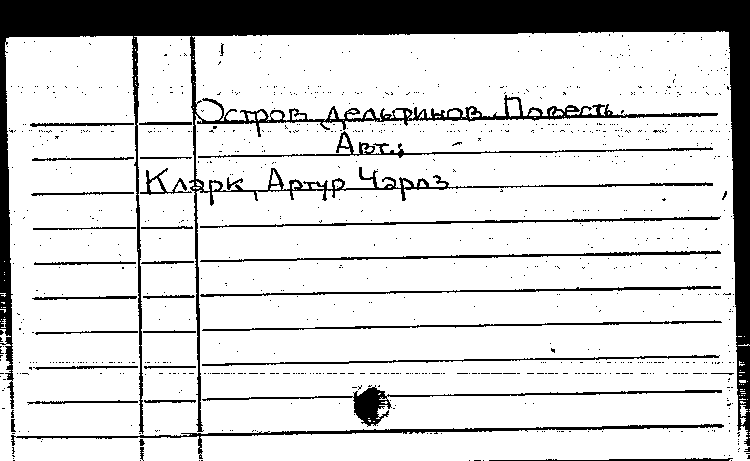 Остров дельфинов. Повесть.
Авт.:
Кларк, Артур Чарлз